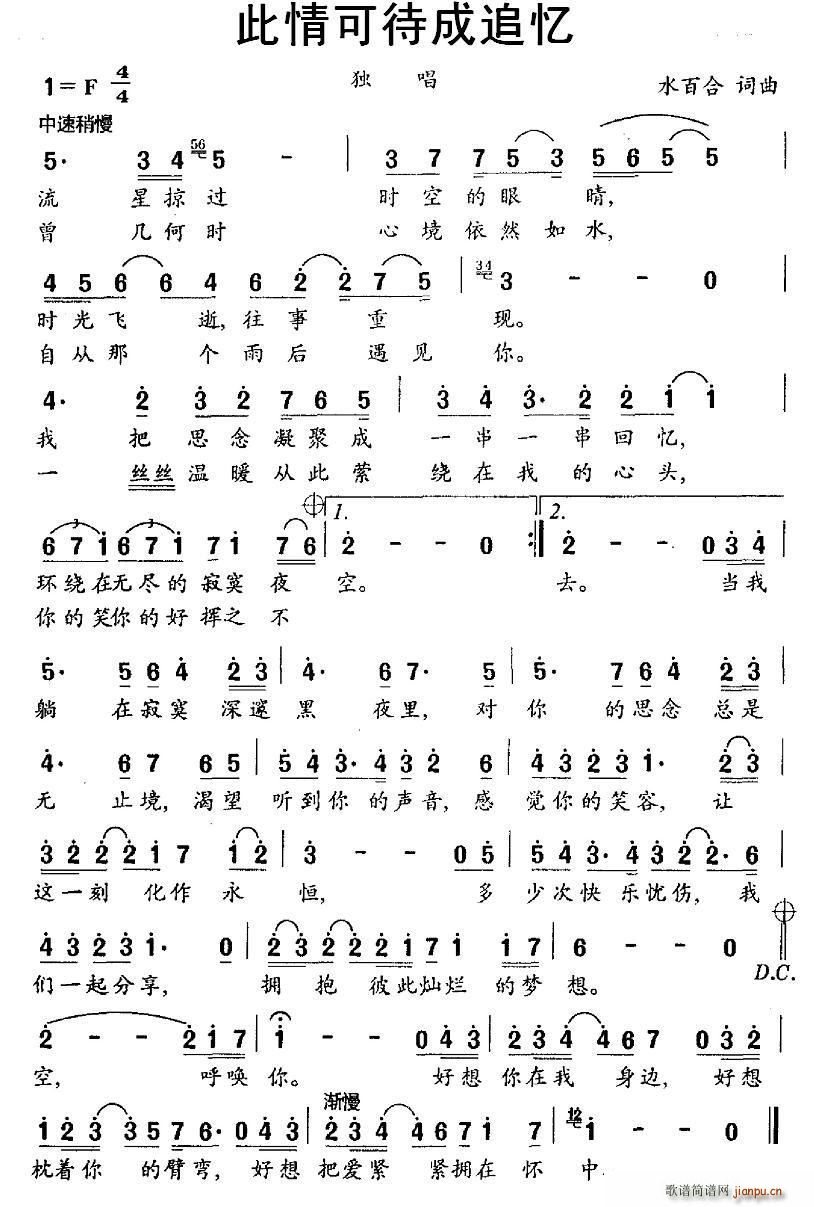 此情可待成追忆
1=F 4/4 独 唱 水百合 词曲
中速稍慢
56
5· 3 4 5 - | 3 7 7 5 3 5 6 5 5 |
流 星 掠 过 时 空 的 眼 睛,
曾 几 何 时 心 境 依 然 如 水,
4 5 6 6 4 6 2 2 7 5 | 34 3 - - 0 |
时 光 飞 逝, 往 事 重 现。
自 从 那 个 雨 后 遇 见 你。
4· 2 3 2 7 6 5 | 3 4 3· 2 2 1 1 |
我 把 思 念 凝 聚 成 一 串 一 串 回 忆,
一 丝丝 温 暖 从 此 萦 绕 在 我 的 心 头,
3 3 1. 2.
6 7 1 6 7 1 7 1 7 6 | 2 - - 0 :| 2 - - 0 3 4 |
环 绕 在 无 尽 的 寂 寞 夜 空。 去。 当 我
你 的 笑 你 的 好 挥 之 不
5· 5 6 4 2 3 | 4· 6 7· 5 | 5· 7 6 4 2 3 |
躺 在 寂 寞 深 邃 黑 夜 里, 对 你 的 思 念 总 是
4· 6 7 6 5 | 5 4 3· 4 3 2 6 | 4 3 2 3 1· 2 3 |
无 止 境, 渴 望 听 到 你 的 声 音, 感 觉 你 的 笑 容, 让
3 2 2 2 1 7 1 2 | 3 - - 0 5 | 5 4 3· 4 3 2 2· 6 |
这 一 刻 化 作 永 恒, 多 少 次 快 乐 忧 伤, 我
4 3 2 3 1· 0 | 2 3 2 2 2 1 7 1 1 7 | 6 - - 0 ||
们 一 起 分 享, 拥 抱 彼 此 灿 烂 的 梦 想。 D.C.
2 - - 2 1 7 | 1 - - 0 4 3 | 2 3 4 4 6 7 0 3 2 |
空, 呼 唤 你。 好 想 你 在 我 身 边, 好 想
渐慢
1 2 3 3 5 7 6· 0 4 3 | 2 3 4 4 6 7 1 7 | 12 1 - - 0 ||
枕 着 你 的 臂 弯, 好 想 把 爱 紧 紧 拥 在 怀 中.
歌谱简谱网 jianpu.cn